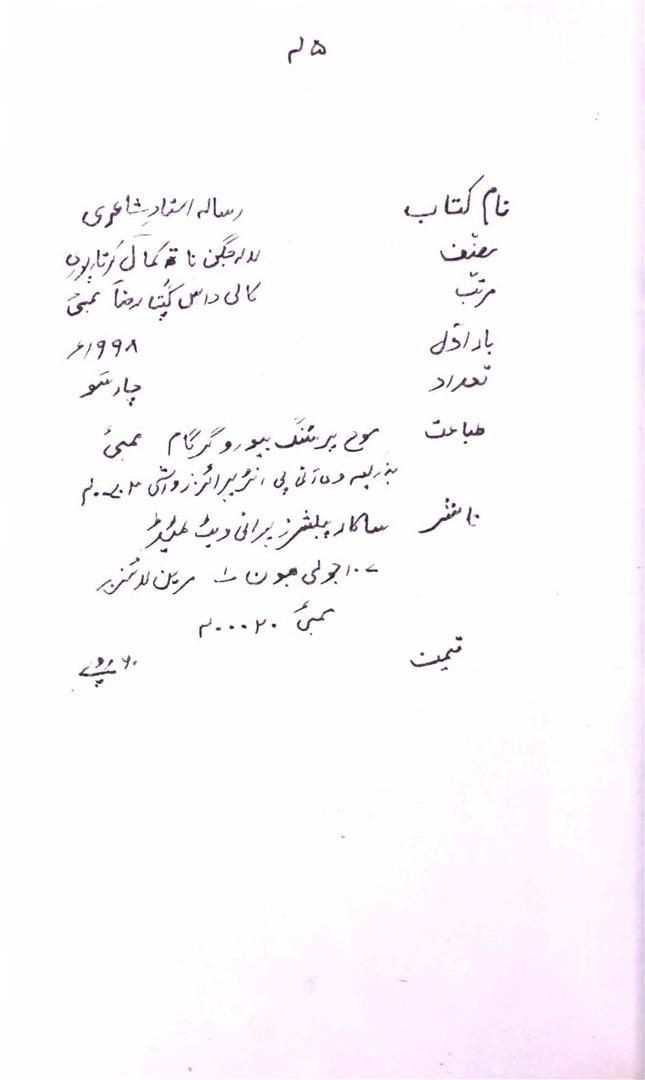 ۴۵
نام کتاب رسالہ استادِ شاعری
مصنّف لالہ جگن ناتھ کمال کرتارپوری
مرتّب کالی داس گپتا رضا ممبئی
بار اوّل ۱۹۹۸ء
تعداد چار سَو
طباعت موج پرنٹنگ بیورو گرگام ممبئی
بذریعہ وی آئی پی انٹرپرائزز واشی
ناشر ساکار پبلشرز پرائی ویٹ لمیٹڈ
۱۰۷ جولی بھون ۱ مرین لائنز
ممبئی ۴۰۰۰۲۰
قیمت ۶۰ روپے